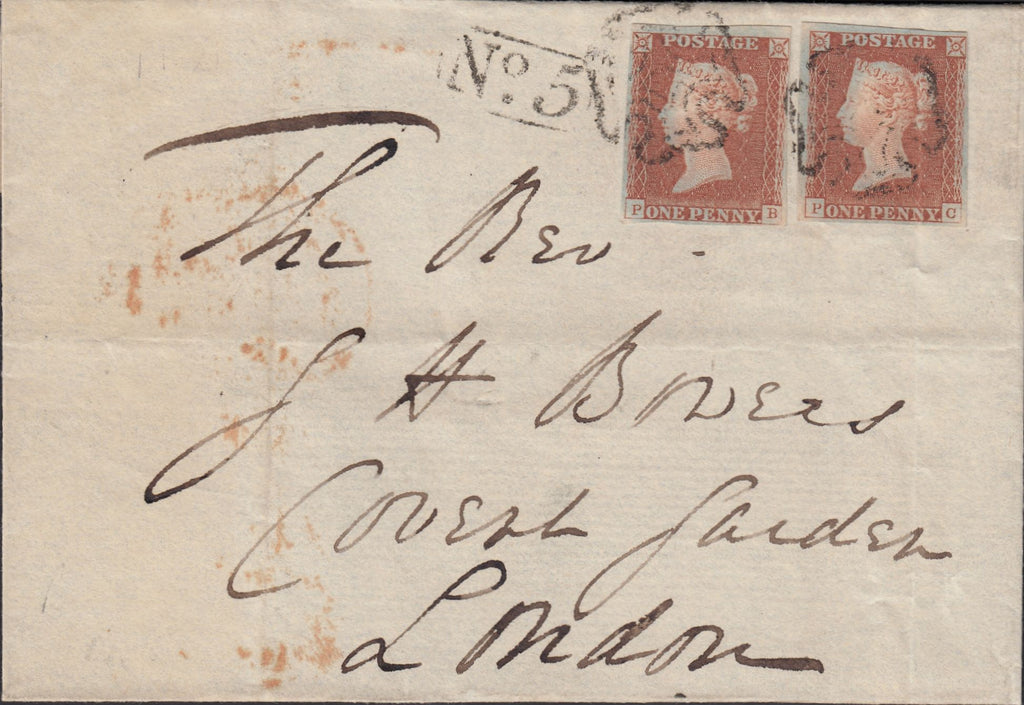 No. 5
POSTAGE
P ONE PENNY. B
POSTAGE
P ONE PENNY C
The Rev
J H Bowers
Covent Garden
London